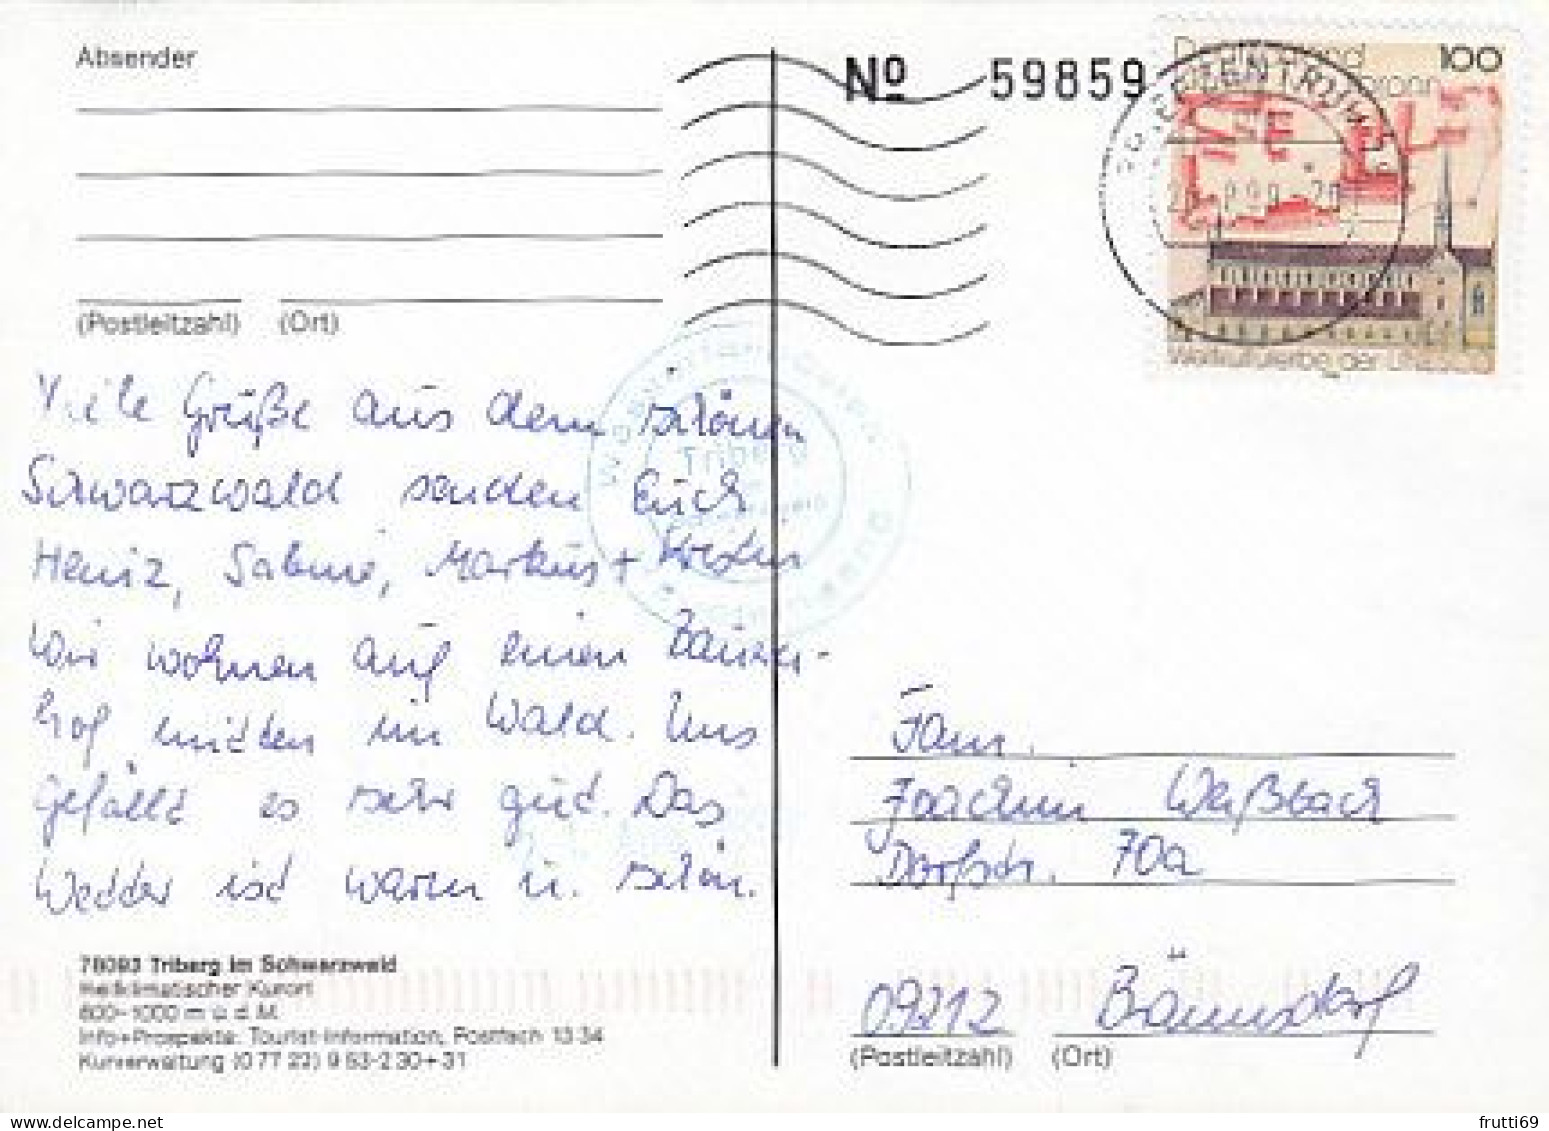 Absender
Nº 59859
Deutschland 100
BRIEFZENTRUM
(Postleitzahl) (Ort)
Wasserfall
Triberg
Viele Grüße aus dem schönen
Schwarzwald senden Euch
Heinz, Sabine, Markus + Kristin
Wir wohnen auf einen Bauern-
hof mitten im Wald. Uns
gefällt es sehr gut. Das
Wetter ist warm u. schön.
Weltkulturerbe der UNESCO
Fam.
Joachim Weißbach
Dorfstr. 70a
Bärnsdorf
(Postleitzahl) (Ort)
78093 Triberg im Schwarzwald
Heilklimatischer Kurort
600-1000 m ü. d. M.
Info+Prospekte: Tourist-Information, Postfach 13 34
Kurverwaltung (0 77 22) 9 53-2 30+31
frutti69